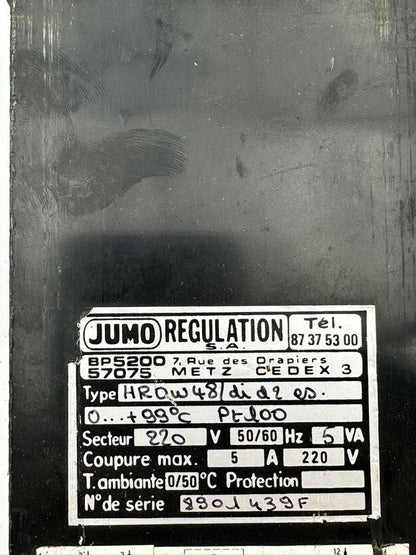 JUMO REGULATION S.A. Tél.
87 37 53 00
BP5200 7, Rue des Drapiers
57075 METZ CEDEX 3
Type HROW48/di d2 es.
0...+99°C Pt100
Secteur 220 V 50/60 Hz 5 VA
Coupure max. 5 A 220 V
T.ambiante 0/50 °C Protection
N° de série 8901439F